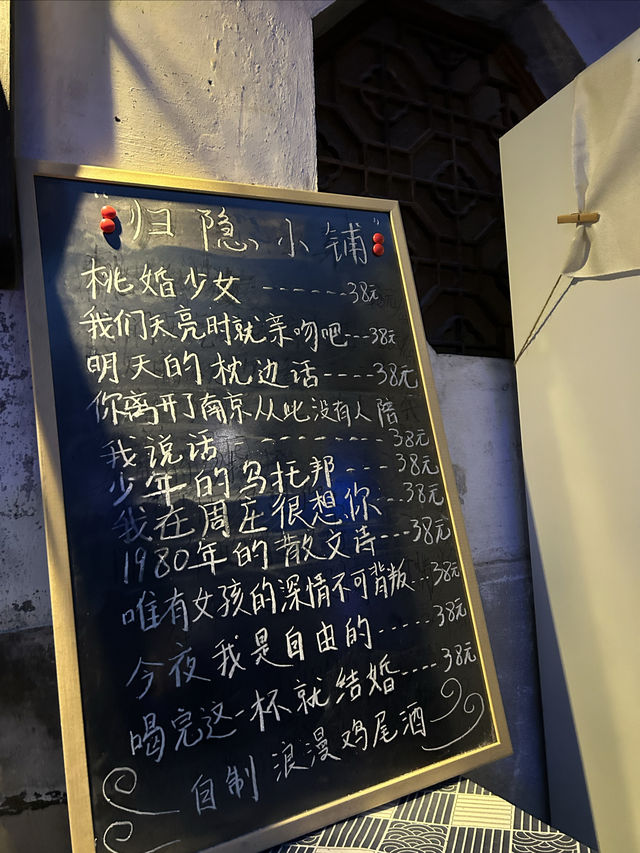 "归隐小铺"
桃婚少女-------38元
我们天亮时就亲吻吧---38元
明天的枕边话----38元
你离开了南京从此没有人陪
我说话----------38元
少年的乌托邦---38元
我在周庄很想你--38元
1980年的散文诗---38元
唯有女孩的深情不可背叛---38元
今夜我是自由的-----38元
喝完这一杯就结婚----38元
自制浪漫鸡尾酒